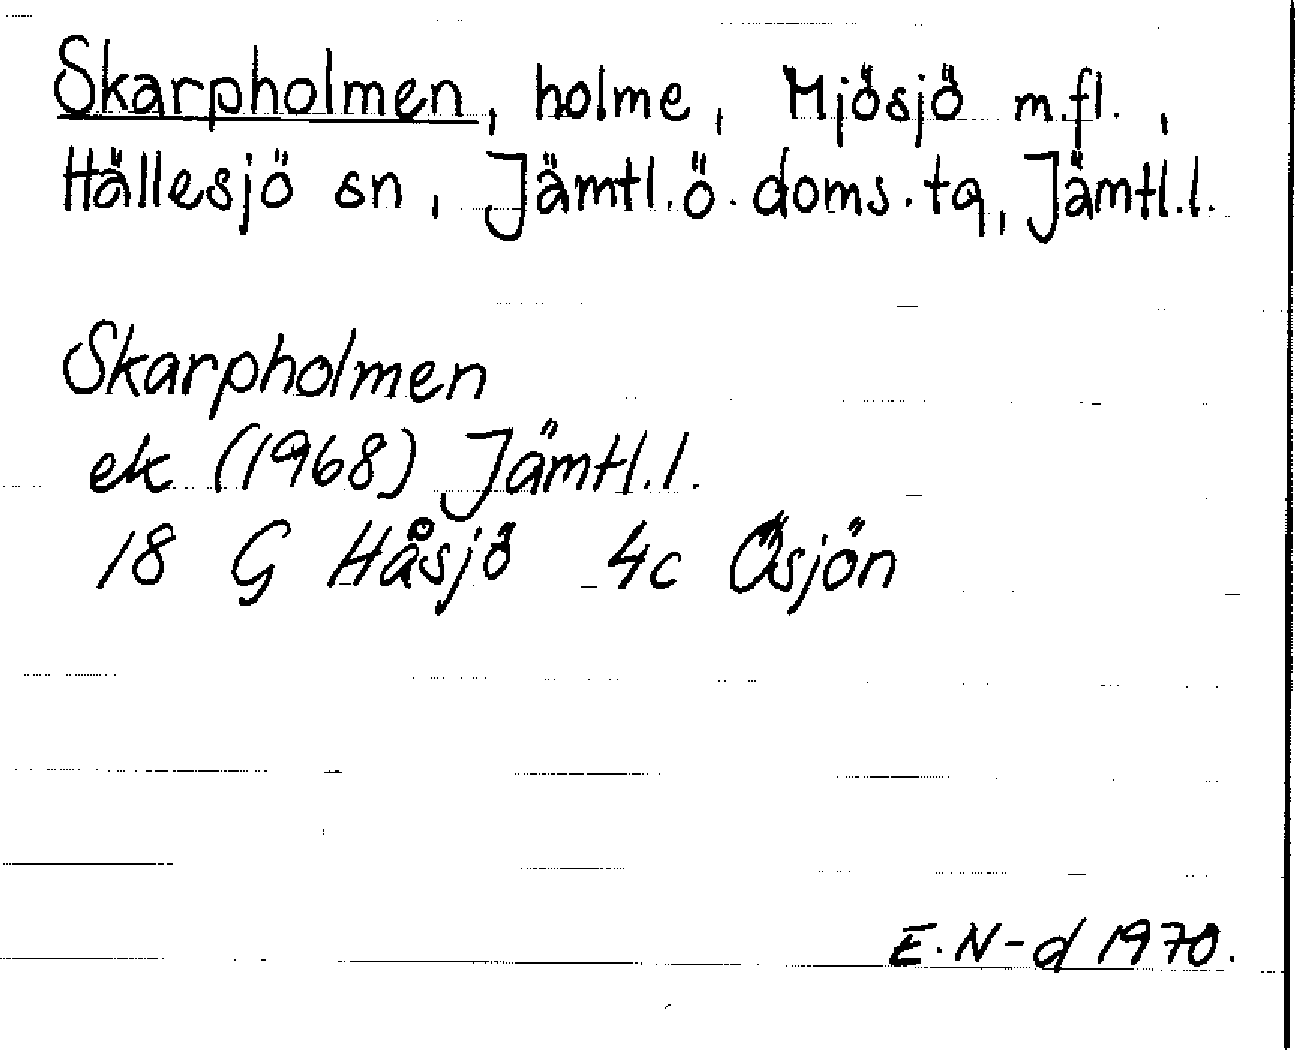 Skarpholmen, holme, Mjösjö m.fl.,
Hällesjö sn, Jämtl.ö.doms.tg, Jämtl.l.
Skarpholmen
ek (1968) Jämtl.l.
18 G Håsjö 4c Ösjön
E.N-d 1970.